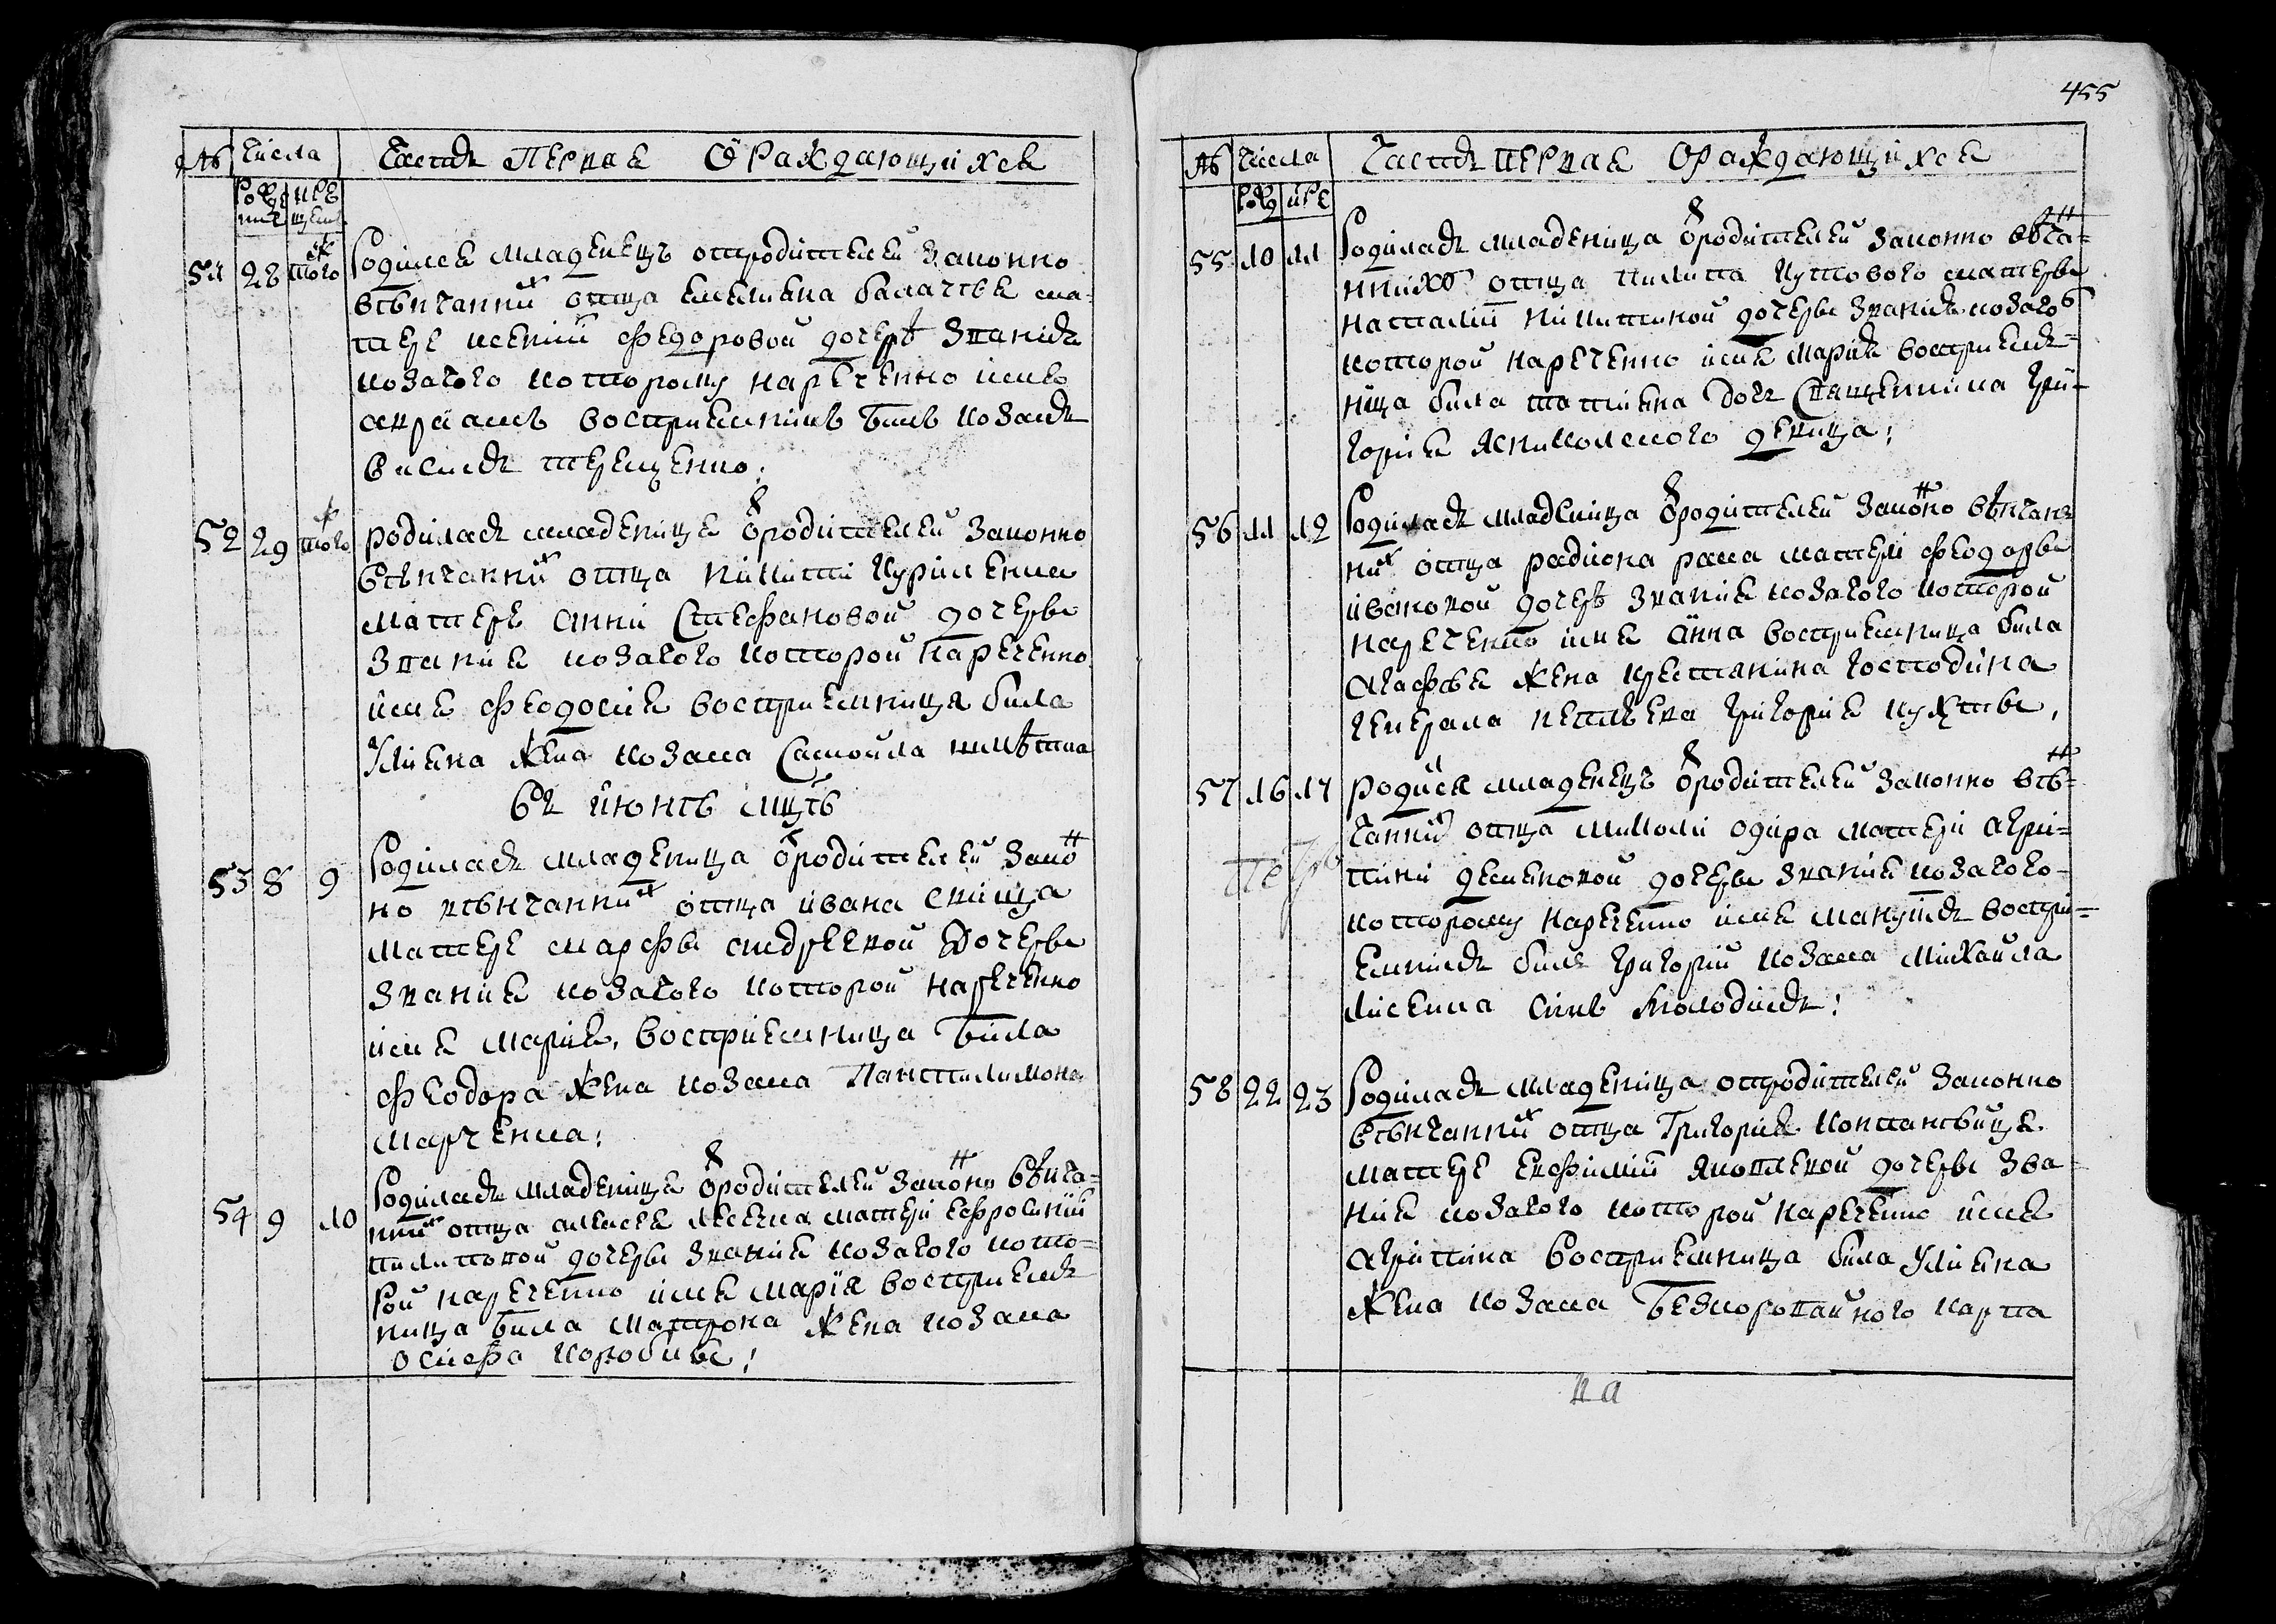 № Числа Часть первая о раждающихся
рожде
ния кре
щения
51 28 того ж Родился младенецъ от родителей законно
вѣнчанних отца Емелияна ма-
тере Ксении Федоровой дочерѣ званія
козачого которому нареченно имя
Авраамъ восприемникъ билъ козакъ
Василь Терещенко:
52 29 того ж родилась младеница от родителей законно
вѣнчанних отца Никити Куриленка
матере Анни Стефановой дочеры
звания козачого которой нареченно
имя Феодосия восприемница била
Улияна жена козака Самойла
въ июнѣ мцѣ
53 8 9 Родилась младеница от родителей закон
но вѣнчанних отца Ивана
матере Марфы Андреевой дочеры
звания козачого которой нареченно
имя Мария, восприемница била
Феодора жена козака Пантилимона
Марченка:
54 9 10 Родилась младеница от родителей законно вѣнча-
нних отца Алексея Лесенка матери Ефросинии
Пилиповой дочеры звания козачого кото-
рой нареченно имя Мария восприем-
ница била Матрона жена козака
Осиефа
455
№ Числа Часть первая о раждающихся
рожд кре
55 10 11 Родилась младеница от родителей законно вѣнча-
нних отца Пилипа Кутового матеры
Наталии Никитиной дочеры звания козачого
которой нареченно имя Мария восприем-
ница била Татияна дочь священника Гри-
гория девица:
56 11 12 Родилась младеница от родителей законно вѣнчан-
них отца Радиона Рака матери Феодоры
Ивановой дочерѣ звания козачого которой
нареченно имя Анна восприемница била
Агафия жена крестянина господина
генерала Григория
57 16 17 родился младенецъ от родителей законно вѣн-
чанних отца Миколи матери Агри-
пини Деменовой дочеры звания козачого
которому нареченно имя Мануилъ воспри-
емникъ билъ Григорий козака Михайла
Лисенка синъ молодикъ:
58 22 23 Родилась младеница от родителей законно
вѣнчанних отца Григория
матере Евфимии Яковлевой дочеры зва-
ния козачого которой нареченно имя
Агрипина восприемница била Улияна
жена козака Карпа